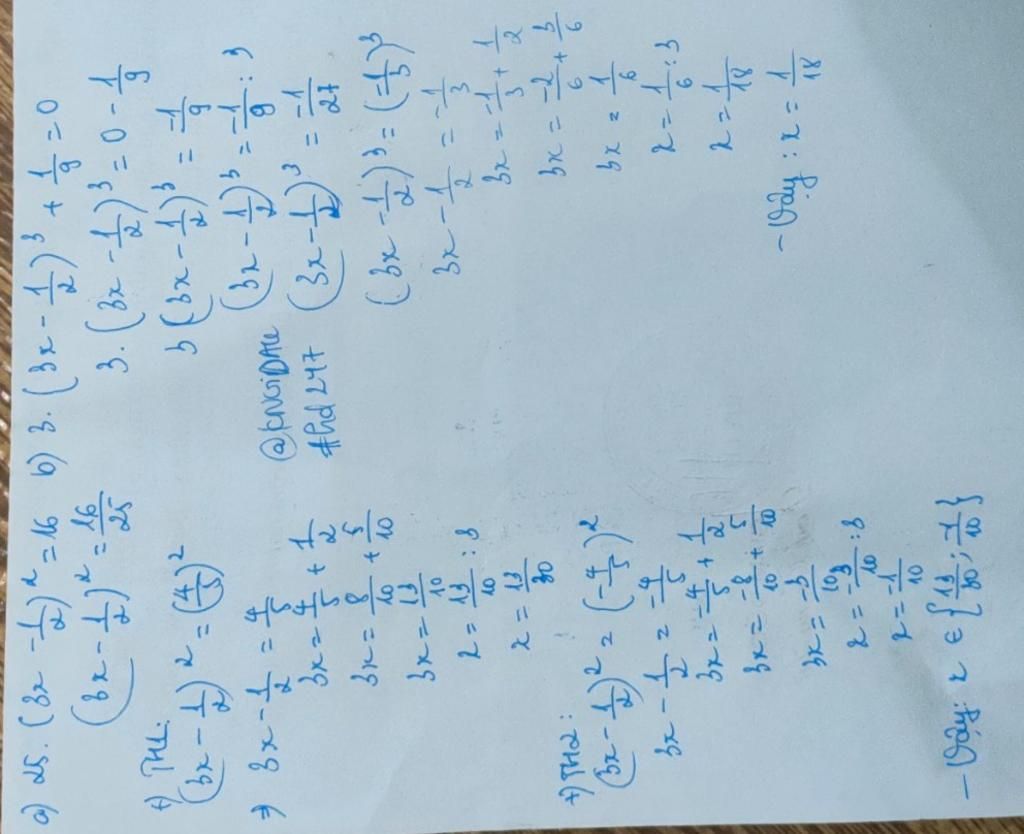 a) 25. (3x - 1/2)² = 16
(3x - 1/2)² = 16/25
+) TH1:
(3x - 1/2)² = (4/5)²
=> 3x - 1/2 = 4/5
3x = 4/5 + 1/2
3x = 8/10 + 5/10
3x = 13/10
x = 13/10 : 3
x = 13/30
+) TH2:
(3x - 1/2)² = (-4/5)²
3x - 1/2 = -4/5
3x = -4/5 + 1/2
3x = -8/10 + 5/10
3x = -3/10
x = -3/10 : 3
x = -1/10
- Vậy: x ∈ {13/30; -1/10}
b) 3. (3x - 1/2)³ + 1/9 = 0
3. (3x - 1/2)³ = 0 - 1/9
3 (3x - 1/2)³ = -1/9
(3x - 1/2)³ = -1/9 : 3
(3x - 1/2)³ = -1/27
(3x - 1/2)³ = (-1/3)³
3x - 1/2 = -1/3
3x = -1/3 + 1/2
3x = -2/6 + 3/6
3x = 1/6
x = 1/6 : 3
x = 1/18
- Vậy: x = 1/18
#hd247